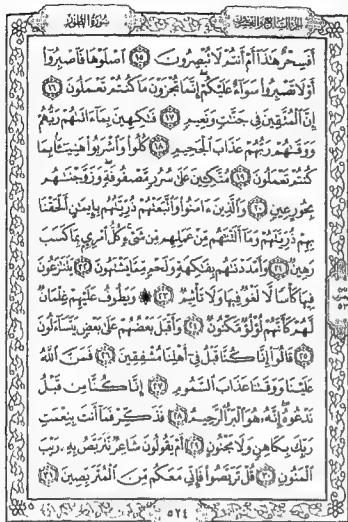 الجزء السابع والعشرون سورة الطور
أَفَسِحْرٌ هَٰذَا أَمْ أَنتُمْ لَا تُبْصِرُونَ ١٥ ٱصْلَوْهَا فَٱصْبِرُوٓا۟
أَوْ لَا تَصْبِرُوا۟ سَوَآءٌ عَلَيْكُمْ إِنَّمَا تُجْزَوْنَ مَا كُنتُمْ تَعْمَلُونَ ١٦
إِنَّ ٱلْمُتَّقِينَ فِى جَنَّٰتٍ وَنَعِيمٍ ١٧ فَٰكِهِينَ بِمَآ ءَاتَىٰهُمْ رَبُّهُمْ
وَوَقَىٰهُمْ رَبُّهُمْ عَذَابَ ٱلْجَحِيمِ ١٨ كُلُوا۟ وَٱشْرَبُوا۟ هَنِيٓـًٔۢا بِمَا
كُنتُمْ تَعْمَلُونَ ١٩ مُتَّكِـِٔينَ عَلَىٰ سُرُرٍ مَّصْفُوفَةٍ وَزَوَّجْنَٰهُم
بِحُورٍ عِينٍ ٢٠ وَٱلَّذِينَ ءَامَنُوا۟ وَٱتَّبَعَتْهُمْ ذُرِّيَّتُهُم بِإِيمَٰنٍ أَلْحَقْنَا
بِهِمْ ذُرِّيَّتَهُمْ وَمَآ أَلَتْنَٰهُم مِّنْ عَمَلِهِم مِّن شَىْءٍ كُلُّ ٱمْرِئٍۭ بِمَا كَسَبَ
رَهِينٌ ٢١ وَأَمْدَدْنَٰهُم بِفَٰكِهَةٍ وَلَحْمٍ مِّمَّا يَشْتَهُونَ ٢٢ يَتَنَٰزَعُونَ
فِيهَا كَأْسًا لَّا لَغْوٌ فِيهَا وَلَا تَأْثِيمٌ ٢٣ ۞ وَيَطُوفُ عَلَيْهِمْ غِلْمَانٌ
لَّهُمْ كَأَنَّهُمْ لُؤْلُؤٌ مَّكْنُونٌ ٢٤ وَأَقْبَلَ بَعْضُهُمْ عَلَىٰ بَعْضٍ يَتَسَآءَلُونَ
٢٥ قَالُوٓا۟ إِنَّا كُنَّا قَبْلُ فِىٓ أَهْلِنَا مُشْفِقِينَ ٢٦ فَمَنَّ ٱللَّهُ
عَلَيْنَا وَوَقَىٰنَا عَذَابَ ٱلسَّمُومِ ٢٧ إِنَّا كُنَّا مِن قَبْلُ
نَدْعُوهُ إِنَّهُۥ هُوَ ٱلْبَرُّ ٱلرَّحِيمُ ٢٨ فَذَكِّرْ فَمَآ أَنتَ بِنِعْمَتِ
رَبِّكَ بِكَاهِنٍ وَلَا مَجْنُونٍ ٢٩ أَمْ يَقُولُونَ شَاعِرٌ نَّتَرَبَّصُ بِهِۦ رَيْبَ
ٱلْمَنُونِ ٣٠ قُلْ تَرَبَّصُوا۟ فَإِنِّى مَعَكُم مِّنَ ٱلْمُتَرَبِّصِينَ ٣١
٥٢٤